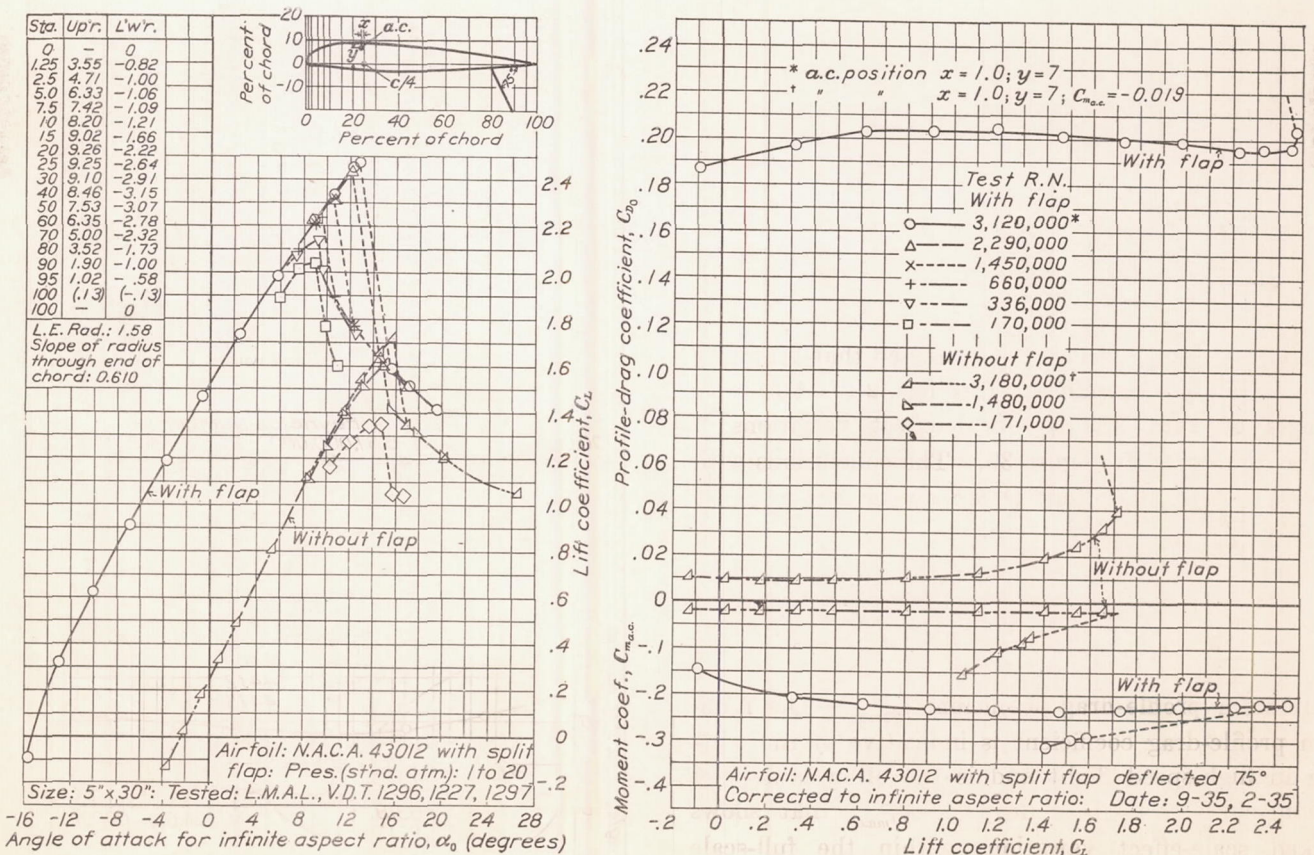 Sta. Up'r. L'w'r.
0 – 0
1.25 3.55 -0.82
2.5 4.71 -1.00
5.0 6.33 -1.06
7.5 7.42 -1.09
10 8.20 -1.21
15 9.02 -1.66
20 9.26 -2.22
25 9.25 -2.64
30 9.10 -2.91
40 8.46 -3.15
50 7.53 -3.07
60 6.35 -2.78
70 5.00 -2.32
80 3.52 -1.73
90 1.90 -1.00
95 1.02 -.58
100 (.13) (-.13)
100 – 0
L.E. Rad.: 1.58
Slope of radius
through end of
chord: 0.610
Percent
of chord
20
10
0
-10
x
a.c.
y
c/4
75°
0 20 40 60 80 100
Percent of chord
2.4
2.2
2.0
1.8
1.6
1.4
1.2
1.0
.8
.6
.4
.2
0
-.2
Lift coefficient, C_L
With flap
Without flap
Airfoil: N.A.C.A. 43012 with split
flap: Pres.(st'nd. atm.): 1 to 20
Size: 5"x30": Tested: L.M.A.L., V.D.T. 1296, 1227, 1297
-16 -12 -8 -4 0 4 8 12 16 20 24 28
Angle of attack for infinite aspect ratio, α₀ (degrees)
.24
.22
.20
.18
.16
.14
.12
.10
.08
.06
.04
.02
0
-.1
-.2
-.3
-.4
Profile-drag coefficient, C_D0
Moment coef., C_m a.c.
* a.c. position x = 1.0; y = 7
† " " x = 1.0; y = 7; C_m a.c. = -0.019
With flap
Test R.N.
With flap
3,120,000*
2,290,000
1,450,000
660,000
336,000
170,000
Without flap
3,180,000†
1,480,000
171,000
Without flap
With flap
Airfoil: N.A.C.A. 43012 with split flap deflected 75°
Corrected to infinite aspect ratio: Date: 9-35, 2-35
-.2 0 .2 .4 .6 .8 1.0 1.2 1.4 1.6 1.8 2.0 2.2 2.4
Lift coefficient, C_L